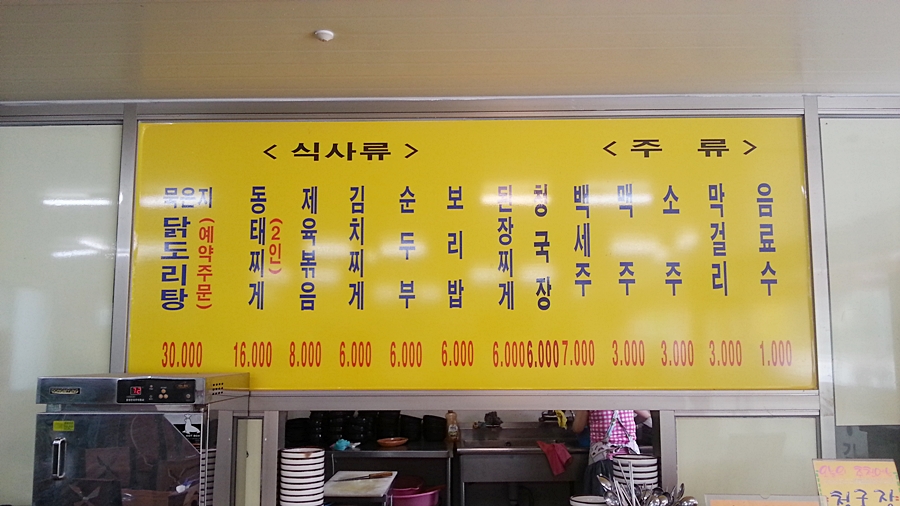 < 식사류 >
< 주 류 >
묵은지
닭도리탕
(예약주문)
30.000
동태찌개
(2인)
16.000
제육볶음
8.000
김치찌개
6.000
순두부
6.000
보리밥
6.000
된장찌개
6.000
청국장
6.000
백세주
7.000
맥주
3.000
소주
3.000
막걸리
3.000
음료수
1.000
청국장